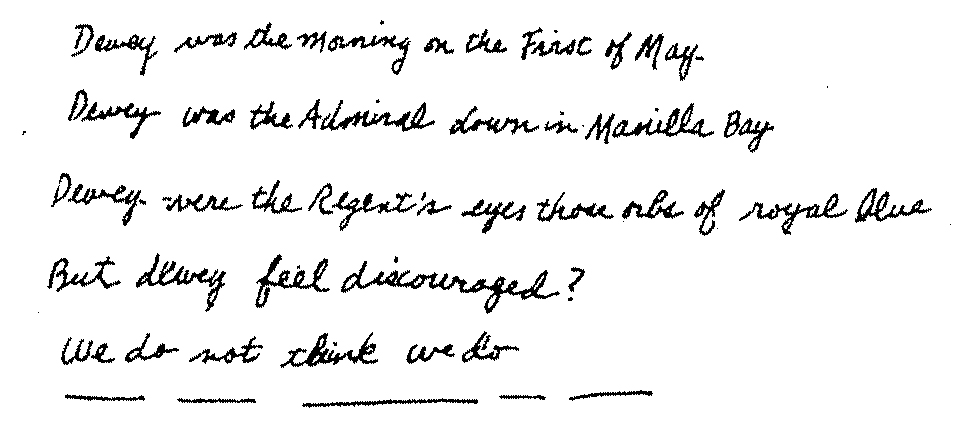 Dewey was the morning on the First of May.
Dewey was the Admiral down in Manilla Bay
Dewey were the Regent's eyes those orbs of royal blue
But dewey feel discouraged?
We do not think we do